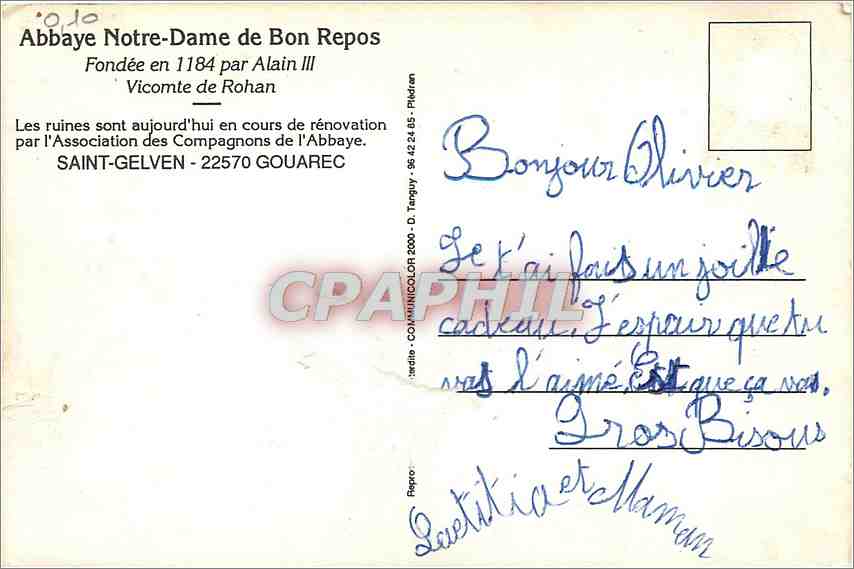 0,10
Abbaye Notre-Dame de Bon Repos
Fondée en 1184 par Alain III
Vicomte de Rohan
Les ruines sont aujourd'hui en cours de rénovation
par l'Association des Compagnons de l'Abbaye.
SAINT-GELVEN - 22570 GOUAREC
Repro
terdite - COMMUNICOLOR 2000 - D. Tanguy - 96 42 24 85 - Plédran
CPAPHIL
Bonjour Olivier
Je t'ai fais un joille
cadeau. J'espair que tu
vas l'aimé. Est que ça vas.
Gros Bisous
Laetitia et Maman